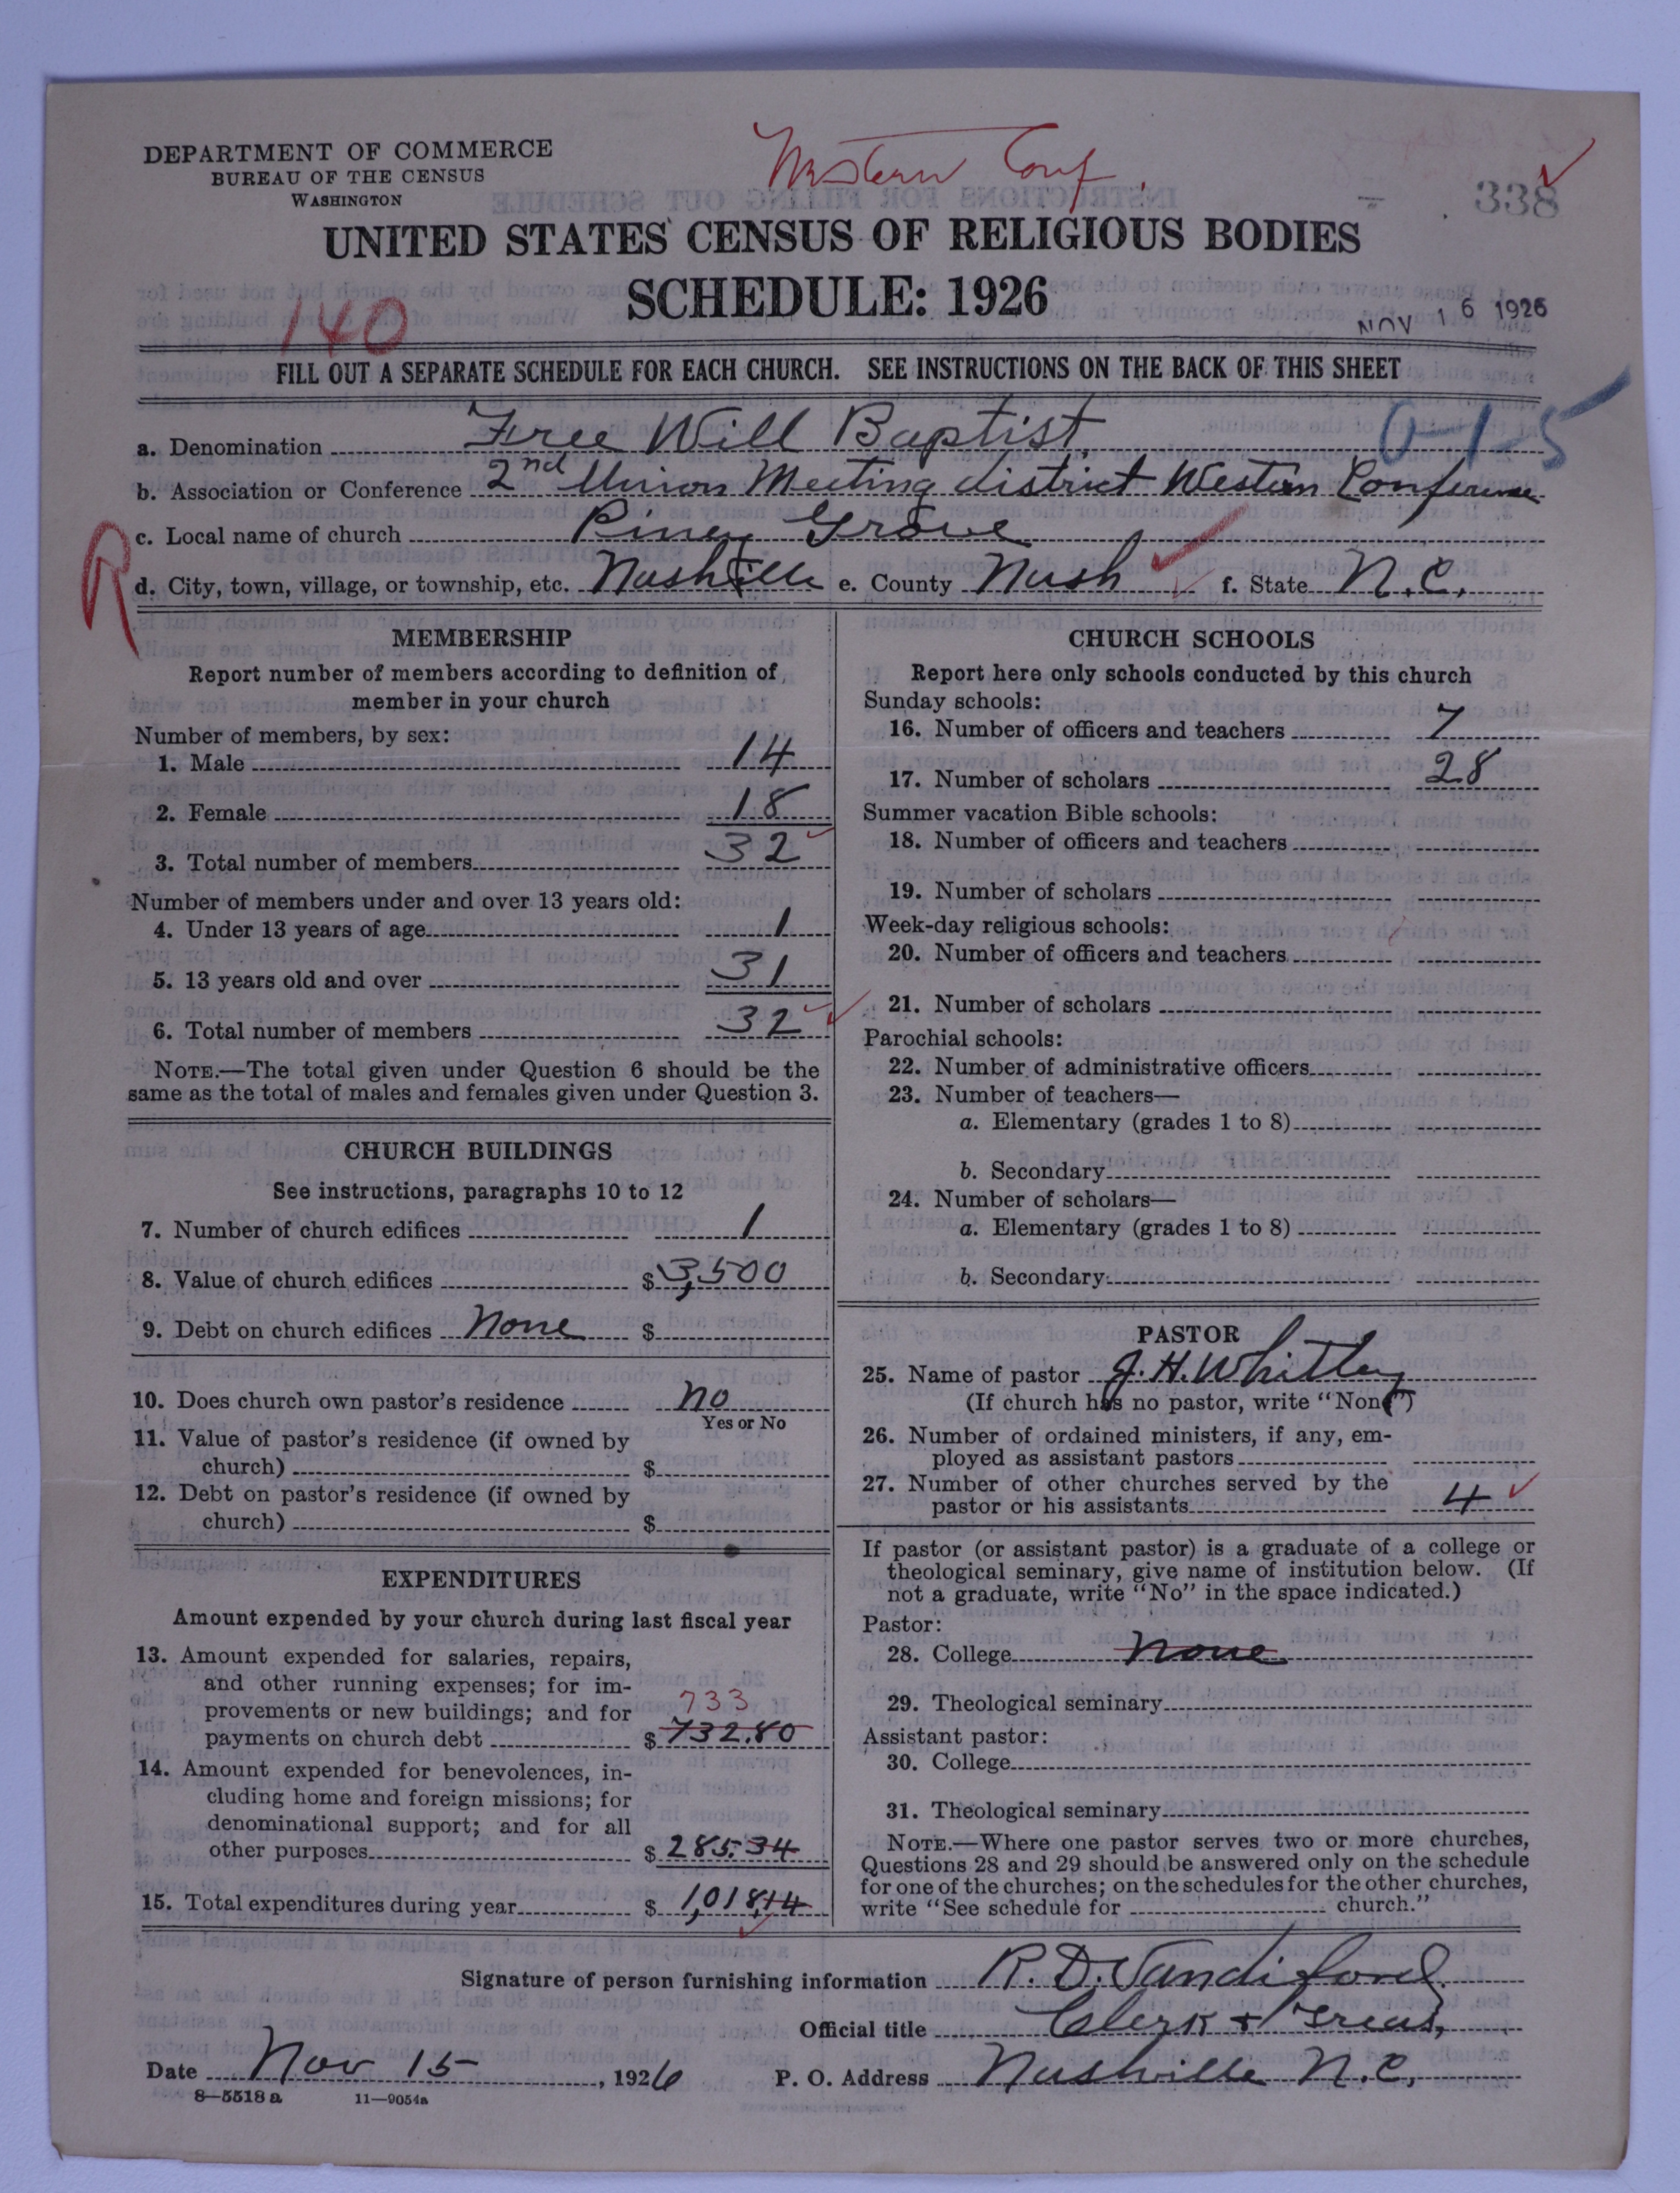 DEPARTMENT OF COMMERCE
BUREAU OF THE CENSUS
WASHINGTON
Western Conf.
338
UNITED STATES CENSUS OF RELIGIOUS BODIES
SCHEDULE: 1926
140
NOV 16 1926
FILL OUT A SEPARATE SCHEDULE FOR EACH CHURCH. SEE INSTRUCTIONS ON THE BACK OF THIS SHEET
a. Denomination Free Will Baptist 0-1-5
b. Association or Conference 2nd Union Meeting district Western Conference
c. Local name of church Piney Grove
R
d. City, town, village, or township, etc. Nashville e. County Nash f. State N.C.
MEMBERSHIP
Report number of members according to definition of
member in your church
Number of members, by sex:
1. Male 14
2. Female 18
3. Total number of members 32
Number of members under and over 13 years old:
4. Under 13 years of age 1
5. 13 years old and over 31
6. Total number of members 32
NOTE.—The total given under Question 6 should be the
same as the total of males and females given under Question 3.
CHURCH BUILDINGS
See instructions, paragraphs 10 to 12
7. Number of church edifices 1
8. Value of church edifices $3,500
9. Debt on church edifices None $
10. Does church own pastor's residence no
Yes or No
11. Value of pastor's residence (if owned by
church) $
12. Debt on pastor's residence (if owned by
church) $
EXPENDITURES
Amount expended by your church during last fiscal year
13. Amount expended for salaries, repairs,
and other running expenses; for im-
provements or new buildings; and for
733
payments on church debt $732.80
14. Amount expended for benevolences, in-
cluding home and foreign missions; for
denominational support; and for all
other purposes $285.34
15. Total expenditures during year $1,018.14
CHURCH SCHOOLS
Report here only schools conducted by this church
Sunday schools:
16. Number of officers and teachers 7
17. Number of scholars 28
Summer vacation Bible schools:
18. Number of officers and teachers
19. Number of scholars
Week-day religious schools:
20. Number of officers and teachers
21. Number of scholars
Parochial schools:
22. Number of administrative officers
23. Number of teachers—
a. Elementary (grades 1 to 8)
b. Secondary
24. Number of scholars—
a. Elementary (grades 1 to 8)
b. Secondary
PASTOR
25. Name of pastor J. H. Whitley
(If church has no pastor, write "None")
26. Number of ordained ministers, if any, em-
ployed as assistant pastors
27. Number of other churches served by the
pastor or his assistants 4
If pastor (or assistant pastor) is a graduate of a college or
theological seminary, give name of institution below. (If
not a graduate, write "No" in the space indicated.)
Pastor:
28. College none
29. Theological seminary
Assistant pastor:
30. College
31. Theological seminary
NOTE.—Where one pastor serves two or more churches,
Questions 28 and 29 should be answered only on the schedule
for one of the churches; on the schedules for the other churches,
write "See schedule for church."
Signature of person furnishing information R. D. Vandiford
Official title Clerk + Treas,
Date Nov 15, 1926 P. O. Address Nashville N.C.
8—5518 a 11—9054a